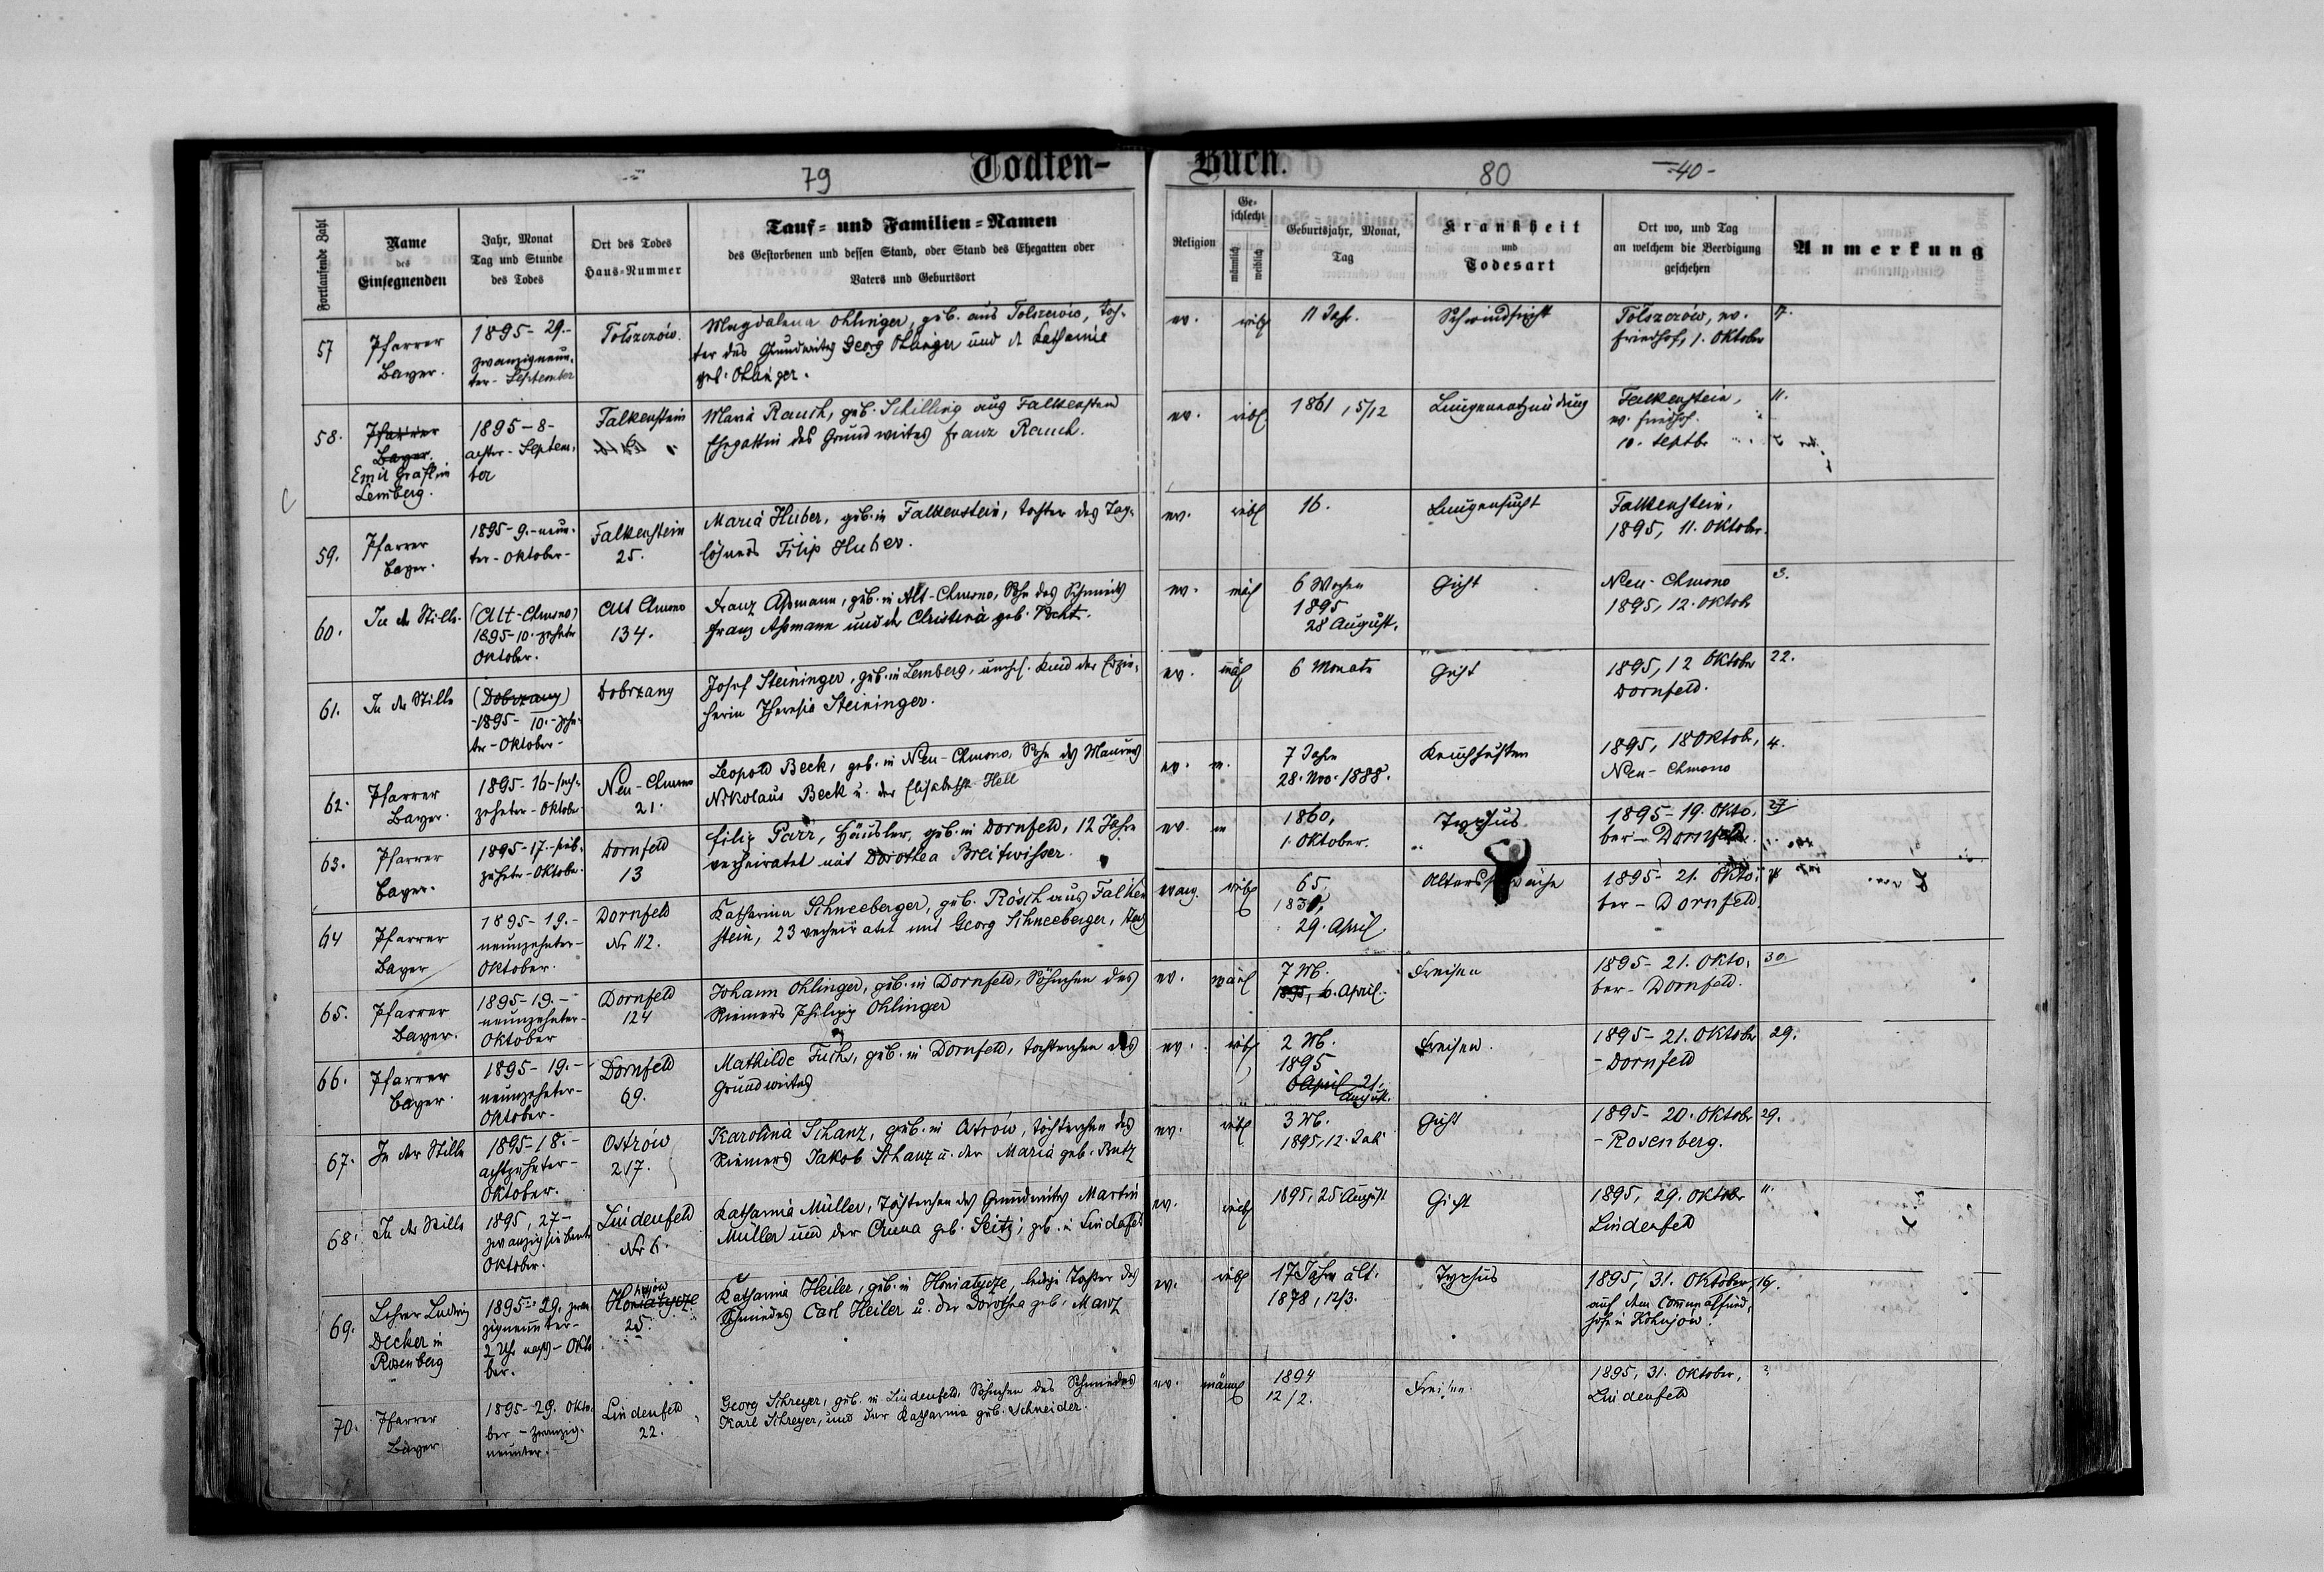 79
Todten-
Buch.
80
-40-
Fortlaufende Zahl
Name
des
Einsegnenden
Jahr, Monat
Tag und Stunde
des Todes
Ort des Todes
Haus-Nummer
Tauf- und Familien-Namen
des Gestorbenen und dessen Stand, oder Stand des Ehegatten oder
Vaters und Geburtsort
Religion
Ge-
schlecht
männlich
weiblich
Geburtsjahr, Monat,
Tag
Krankheit
und
Todesart
Ort wo, und Tag
an welchem die Beerdigung
geschehen
Anmerkung
57
Pfarrer
Bayer.
1895 - 29.-
zwanzigneun-
ter - September
Tolszczów.
Magdalena Ohlinger, geb. aus Tolszczów, Toch-
ter des Grundwirtes Georg Ohlinger und d. Katharina
geb. Ohlinger.
ev.
weibl.
11 Jahr.
Schwindsucht
Tolszczów, ev.
Friedhof, 1. Oktober
58.
Pfarrer
Bayer.
Emil Gräfl in
Lemberg.
1895 - 8-
achter - Septem-
ber
Falkenstein
Maria Rauch, geb. Schilling aus Falkenstein
Ehegattin des Grundwirtes Franz Rauch.
ev.
weibl.
1861, 5/12
Lungenentzündung
Falkenstein,
ev. Friedhof.
10. Septbr
11.
59.
Pfarrer
Bayer.
1895 - 9.- neun-
ter - Oktober -
Falkenstein
25.
Maria Huber, geb. in Falkenstein, Tochter des Tag-
löhners Filip Huber.
ev.
weibl.
16.
Lungensucht
Falkenstein,
1895, 11. Oktober.
60.
In der Stille.
(Alt-Chmono)
1895-10. zehnter
Oktober.
Alt Chmono
134.
Franz Aßmann, geb. in Alt-Chmono, Sohn des Schmieds
Franz Aßmann und der Christina geb.
ev.
mäl
6 Wochen
1895
28 August.
Gicht
Neu-Chmono
1895, 12. Oktob
3.
61.
In der Stille
(Dobrzany)
-1895- 10.- zehn-
ter - Oktober -
Dobrzany
Josef Steininger, geb. in Lemberg, unehel. Kind der Erzie-
herin Theresia Steininger.
ev.
mäl
6 Monate
Gicht
1895, 12 Oktober
Dornfeld.
22.
62.
Pfarrer
Bayer.
1895 - 16 - sech-
zehnter - Oktober
Neu-Chmono
21.
Leopold Beck, geb. in Neu-Chmono, Sohn des Maurers
Nikolaus Beck u. der Elisabeth Hell
ev.
m.
7 Jahre
28. Nov. 1888.
Keuchhusten
1895, 18 Oktob,
Neu-Chmono
4.
63.
Pfarrer
Bayer.
1895 - 17. - sieb-
zehnter - Oktober
Dornfeld
13
Filip Parr, Häusler, geb. in Dornfeld, 12 Jahre
verheiratet mit Dorothea Breitwisser.
ev.
m
1860,
1. Oktober.
Typhus
1895 - 19. Okto-
ber - Dornfeld.
27
64
Pfarrer
Bayer
1895 - 19. -
neunzehnter-
Oktober.
Dornfeld
Nr 112.
Katharina Schneeberger, geb. Rösch aus Falken
stein, 23 verheiratet mit Georg Schneeberger,
evang.
weibl
65,
29. April.
Altersschwäche
1895 - 21. Okto-
ber - Dornfeld
65.
Pfarrer
Bayer.
1895 - 19. -
neunzehnter-
Oktober
Dornfeld
124
Johann Ohlinger, geb. in Dornfeld, Söhnchen des
Riemers Philipp Ohlinger
ev.
mänl
7 M.
1895, 6. April.
Freisen
1895 - 21. Okto-
ber - Dornfeld.
30
66.
Pfarrer
Bayer.
1895 - 19. -
neunzehnter-
Oktober -
Dornfeld
69.
Mathilde Fuchs, geb. in Dornfeld, Töchterchen des
Grundwirtes
ev.
weibl
2 M.
1895
6 April 21.
August.
Freisen.
1895 - 21. Oktober
- Dornfeld
29.
67.
In der Stille
1895 - 18. -
achtzehnter-
Oktober.
Ostrów
217.
Karolina Schanz, geb. in Ostrów, Töchterchen des
Riemers Jakob Schanz u. der Maria geb. Butz
ev.
weibl
3 M.
1895, 12. Juli
Gicht
1895 - 20. Oktober
- Rosenberg.
29.
68.
In der Stille
1895, 27 -
zwanzigsiebente
Oktober.
Lindenfeld
Nr 6.
Katharina Müller, Töchterchen des Grundwirtes Martin
Müller und der Anna geb. Seitz, geb. in Lindenfeld
ev.
weibl
1895, 25 August
Gicht
1895, 29. Oktober
Lindenfeld
11.
69.
Lehrer Ludwig
Decker in
Rosenberg
1895 - 29. zwan-
zigneunter-
2 Uhr nachts - Okto
ber.
Honiatycze
25.
Katharina Heiler, geb. in Honiatycze, ledige Tochter des
Schmiedes Carl Heiler u. der Dorothea geb. Manz
ev.
weibl
17 Jahre alt.
1878, 12/3.
Typhus
1895, 31. Oktober,
auf dem Communalfried-
hofe in
16.
70.
Pfarrer
Bayer
1895 - 29. Okto-
ber - zwanzig-
neunter.
Lindenfeld
22.
Georg Schreyer, geb. in Lindenfeld, Söhnchen des Schmiedes
Karl Schreyer, und der Katharina geb. Schneider.
ev.
männl
1894
12/2.
Freisen
1895, 31. Oktober,
Lindenfeld